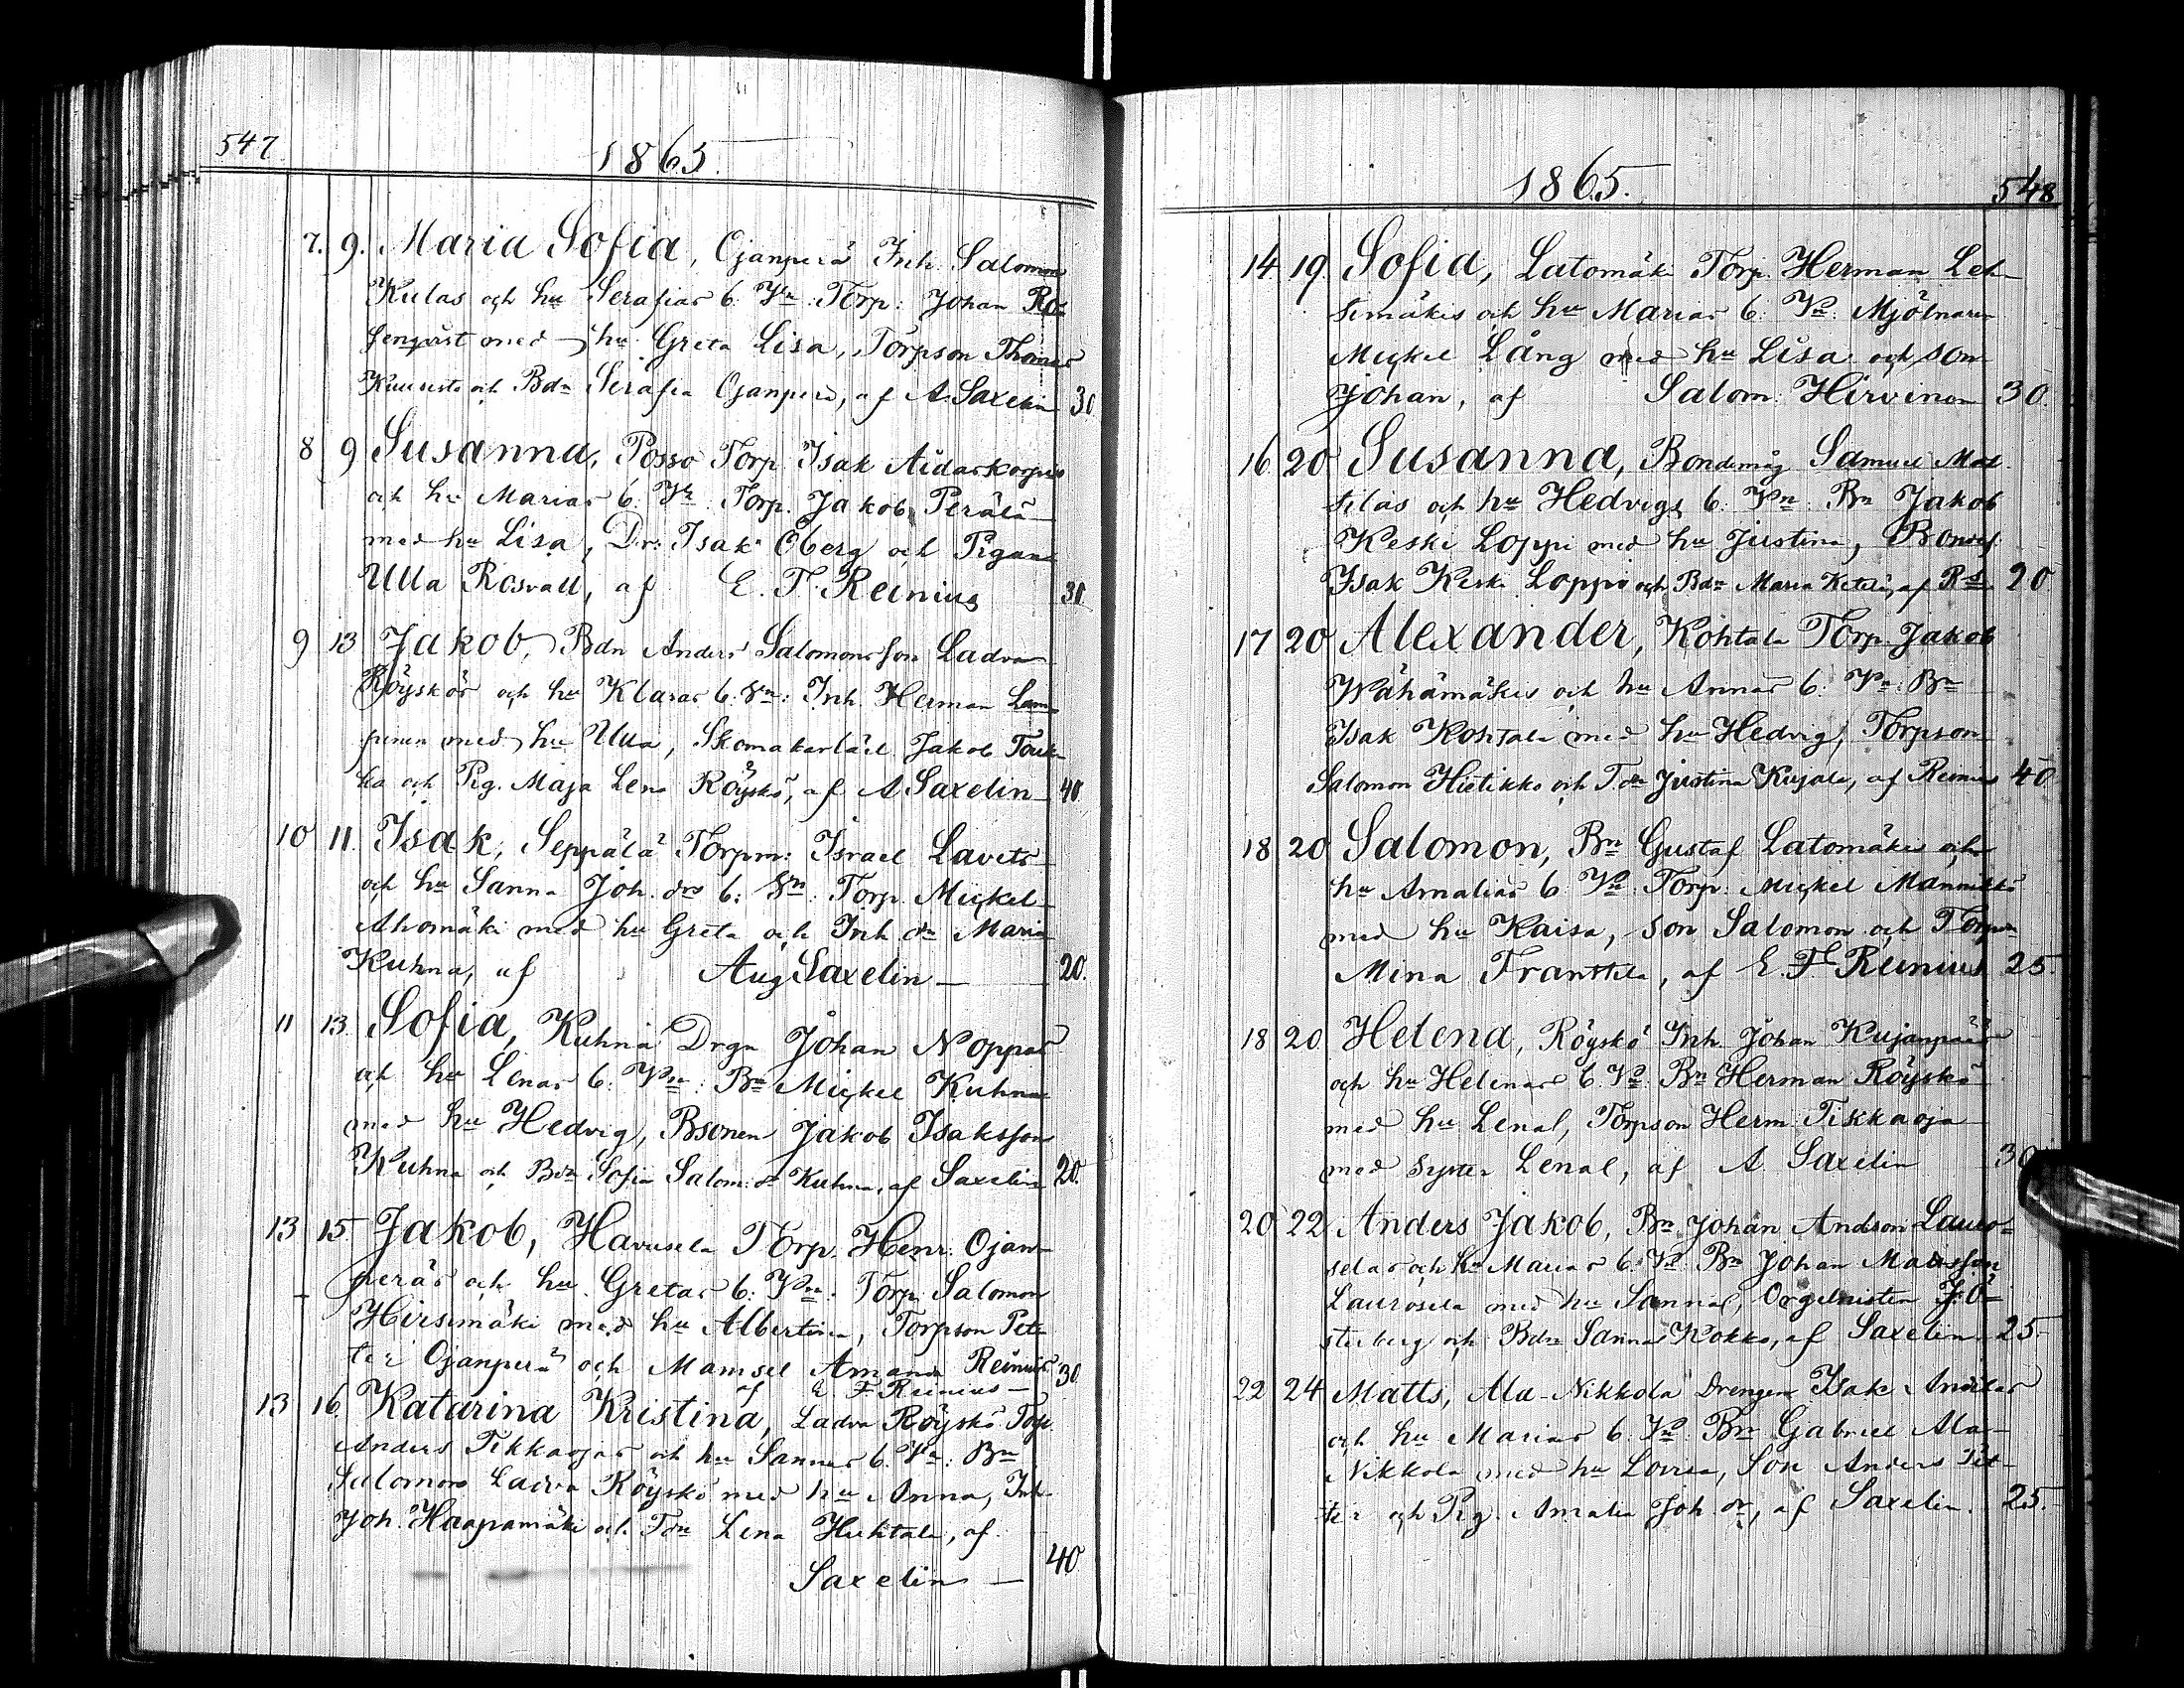 547
1865.
7. 9. Maria Sofia, Ojanperä Inh. Salomon
Kulas och hu Serafias b: Vn: Torp: Johan Ro-
senqvist med hu Greta Lisa, Torpson Thomas
och Bdn Serafia Ojanperä, af A Saxelin 30.
8 9 Susanna, Posso Torp. Isak Aidaskorpis
och hu Marias b. Vn Torp. Jakob Perälä
med hu Lisa, Dr: Isak Öberg och Pigan
Ulla Rosvall, af E. F. Reinius 30.
9 13 Jakob, Bdn Anders Salomonsson Ladva
Röyskös och hu Klaras b: Sn: Inh. Herman Lam-
pinen med hu Ulla, Skomakarlärl. Jakob
och Pig. Maja Lena Röyskö, af A Saxelin 40.
10 11. Isak, Seppälä Torpm: Israel
och hu Sanna Joh. drs b: Sn: Torp. Mickel
Ahomäki med hu Greta och Inh. dr Maria
Kuhna, af Aug Saxelin — 20.
11 13. Sofia, Kuhna Drgn Johan Noppas
och hu Lenas b: Vn: Bn Mickel Kuhna
med hu Hedvig, Bsonen Jakob Isaksson
Kuhna och Bdr Sofia Salom: dr Kuhna, af Saxelin 20.
13 15 Jakob, Havusela Torp. Henr. Ojan-
peräs och hu Gretas b: Vn: Torp. Salomon
Hirsimäki med hu Albertina, Torpson Pet-
ter Ojanperä och Mamsel Amanda Reinius 30.
af E. F Reinius —
13 16. Katarina Kristina, Ladva Röyskö Torp.
Anders Tikkaojas och hu Sannas b. Vn: Bn
Salomon Ladva Röyskö med hu Anna, Inh.
Joh. Haapamäki och Tdr Lena Huhtala, af
Saxelin — 40
1865.
548
14 19. Sofia, Latomäki Torp. Herman Leh-
timäkis och hu Marias b: Vn: Mjölnaren
Mickel Lång med hu Lisa och son
Johan, af Salom: Hirvinen 30.
16 20 Susanna, Bondemåg Samuel Mat-
tilas och hu Hedvigs b: Vn: Bn Jakob
Keski Loppi med hu Justina, Bondes.
Isak Keski Loppi och Bdr Maria Ketola, af Rs 20.
17 20 Alexander, Kohtala Torp. Jakob
Wähämäkis och hu Annas b: Vn: Bn
Isak Kohtala med hu Hedvig, Torpson
Salomon Hietikko och Tdr Justina Kujala, af Reinius 40
18 20 Salomon, Bn Gustaf Latomäkis och
hu Amalias b: Vn: Torp: Mickel Männikkö
med hu Kaisa, son Salomon och
Mina Franttila, af E. F Reinius 25.
18 20 Helena, Röyskö Inh. Johan Kujanpääs
och hu Helenas b. Vn: Bn Herman Röyskö
med hu Lena, Torpson Herm. Tikkaoja
med syster Lena, af A Saxelin 30
20 22 Anders Jakob, Bn Johan Andson Lauro-
selas och hu Marias b. Vn: Bn Johan Matsson
Laurosela med hu Sanna, Orgelnisten J. Ö-
sterberg och Bdn Sanna Kokko, af Saxelin 25.
22 24 Matts, Ala-Nikkola Drengen Isak Anttilas
och hu Marias b. Vn: Bn Gabriel Ala-
Nikkola med hu Lovisa, Son Anders Pet-
ter och Pig. Amalia Joh. dr, af Saxelin. 25.